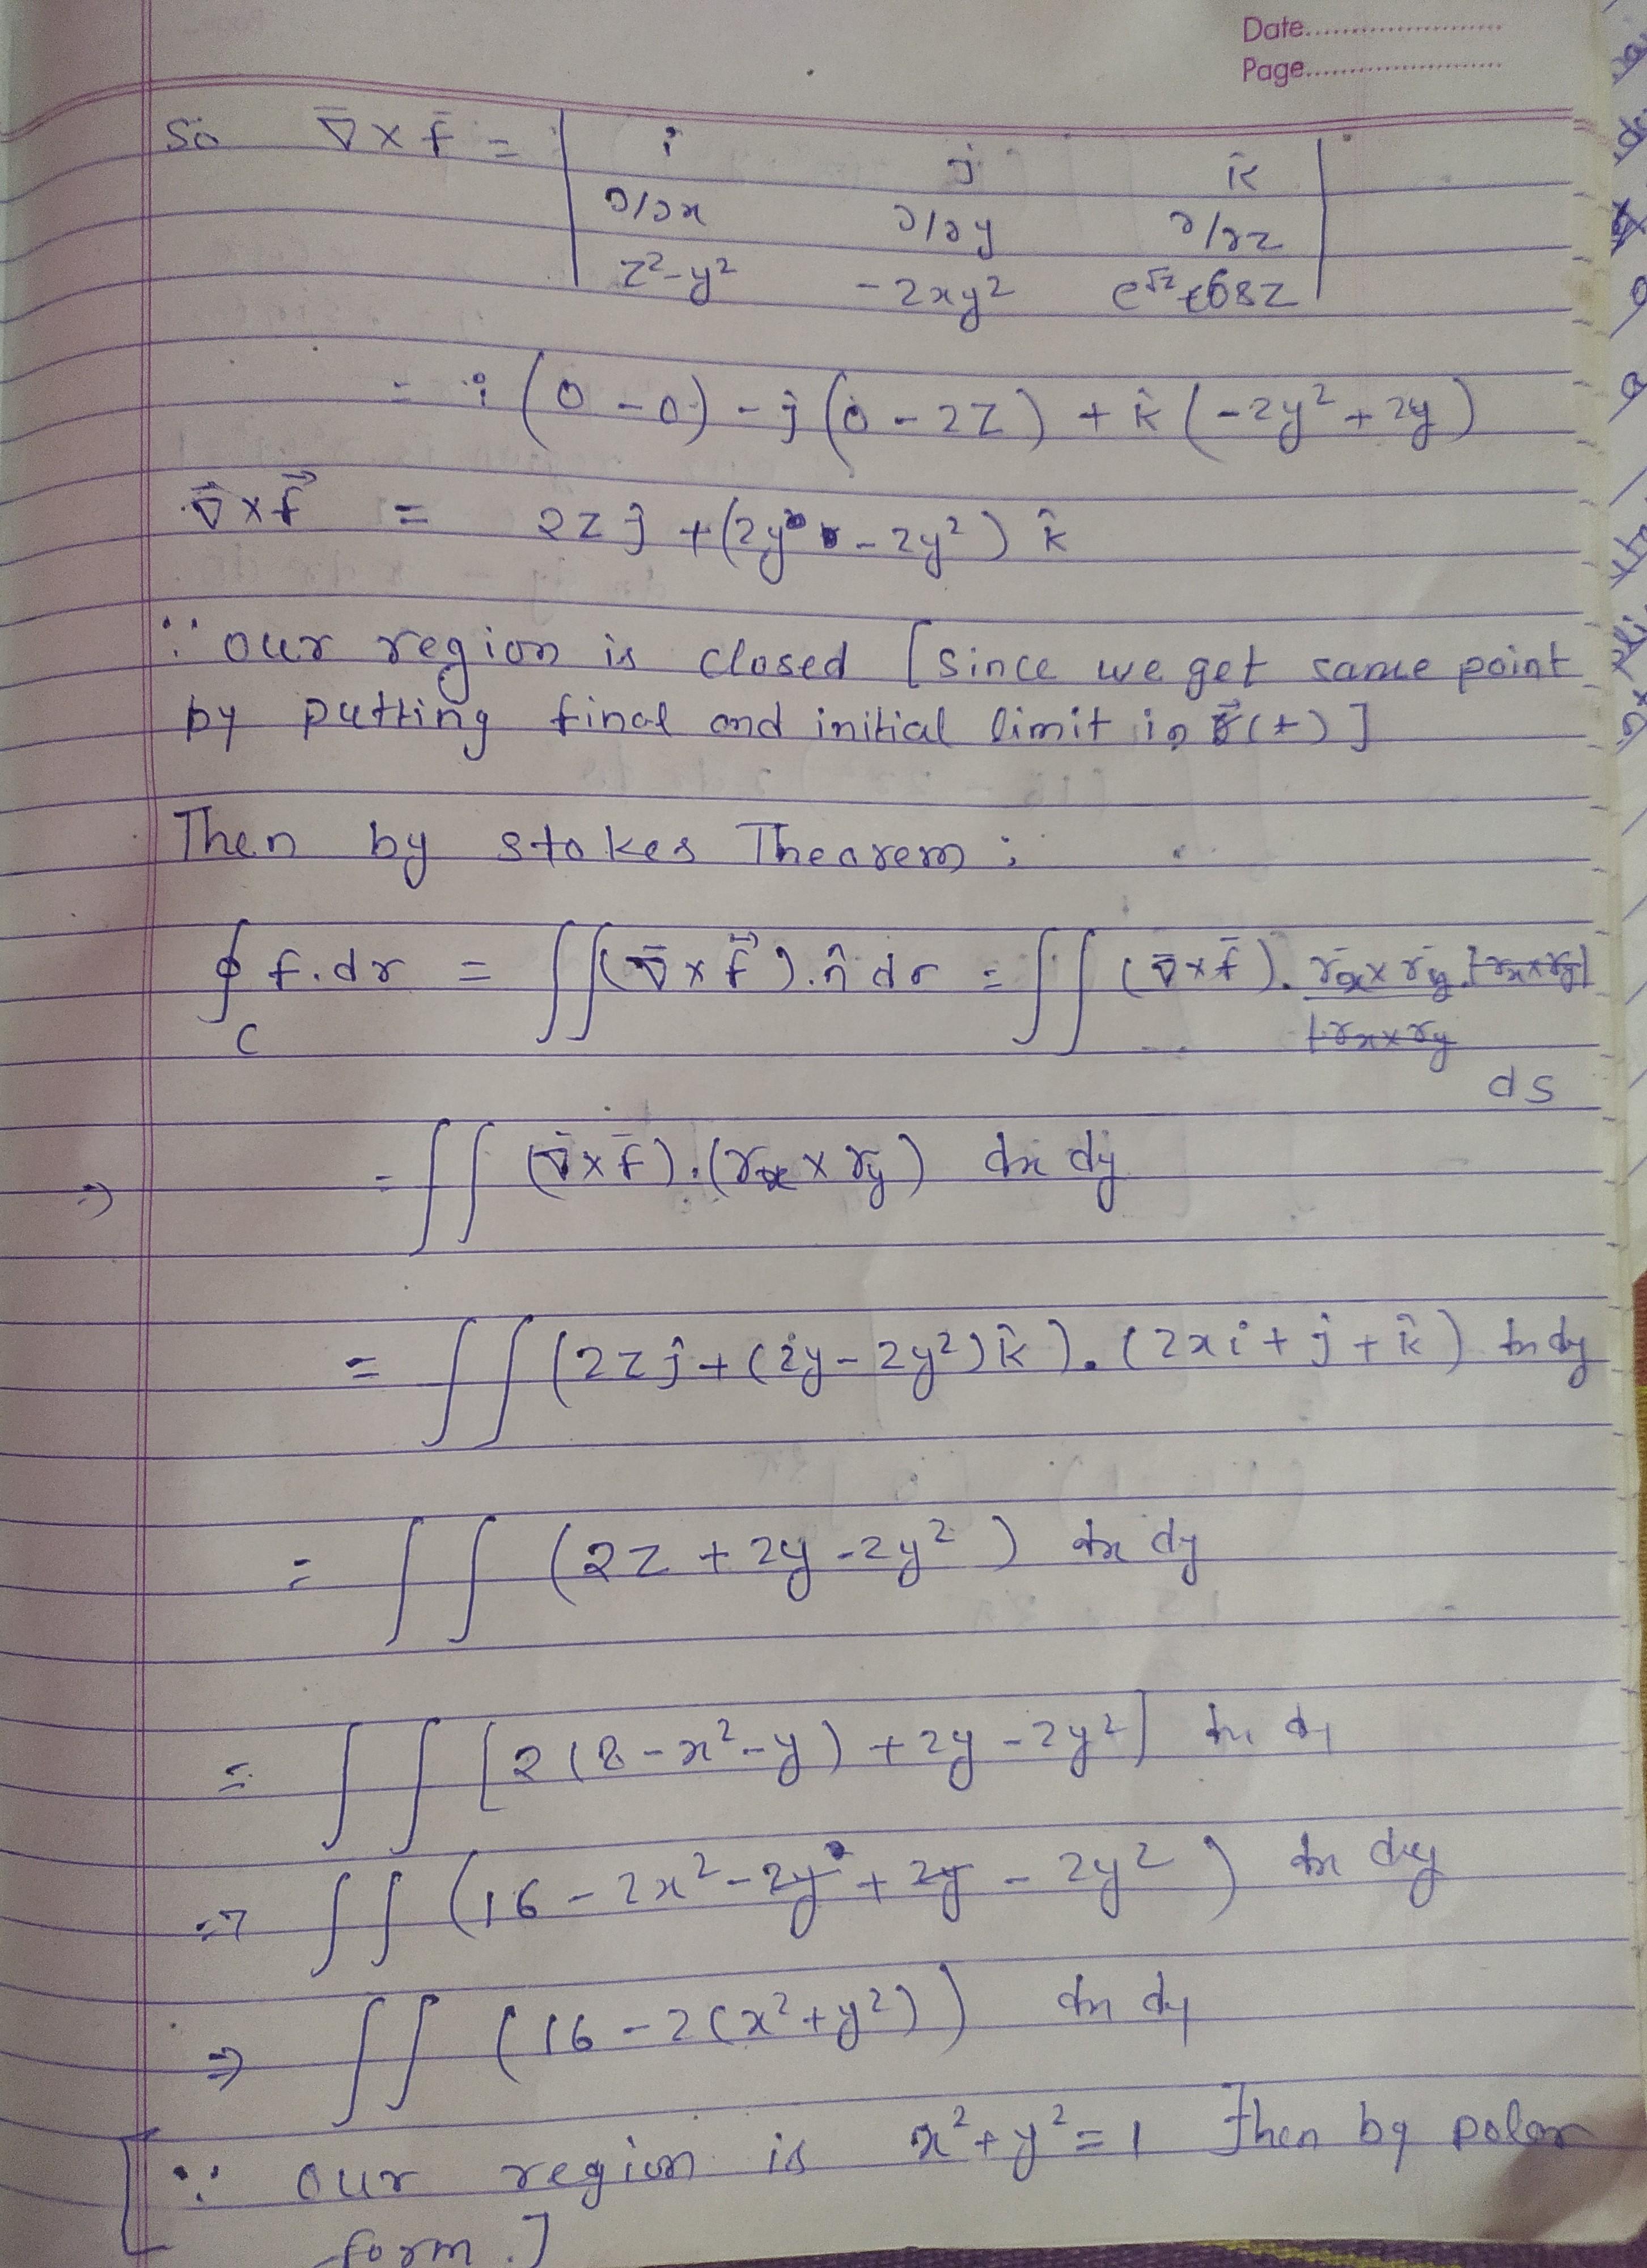 Date
Page
So ∇̄ × f̄ = | i j k̂ |
∂/∂x ∂/∂y ∂/∂z
z²-y² -2xy² e^√z + cos z
= i (0 - 0) - ĵ (0 - 2z) + k̂ (-2y² + 2y)
∇⃗ × f⃗ = 2z ĵ + (2y - 2y²) k̂
∵ our region is closed [since we get same point
by putting final and initial limit in r⃗(t)]
Then by stokes Theorem :
∮ f.dr = ∬ (∇̄ × f⃗).n̂ dσ = ∬ (∇̄ × f̄). rx × ry |rx × ry|
C |rx × ry
ds
⇒ = ∬ (∇̄ × f̄).(rx × ry) dx dy
= ∬ (2z ĵ + (2y - 2y²) k̂).(2xi + ĵ + k̂) dx dy
= ∬ (2z + 2y - 2y²) dx dy
= ∬ [2(8 - x² - y) + 2y - 2y²] dx dy
⇒ ∬ (16 - 2x² - 2y + 2y - 2y²) dx dy
⇒ ∬ (16 - 2(x² + y²)) dx dy
[∵ our region is x² + y² = 1 Then by polar
form.]